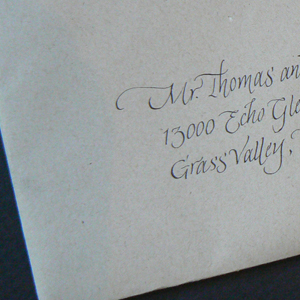 Mr. Thomas an
13000 Echo Gle
Grass Valley,